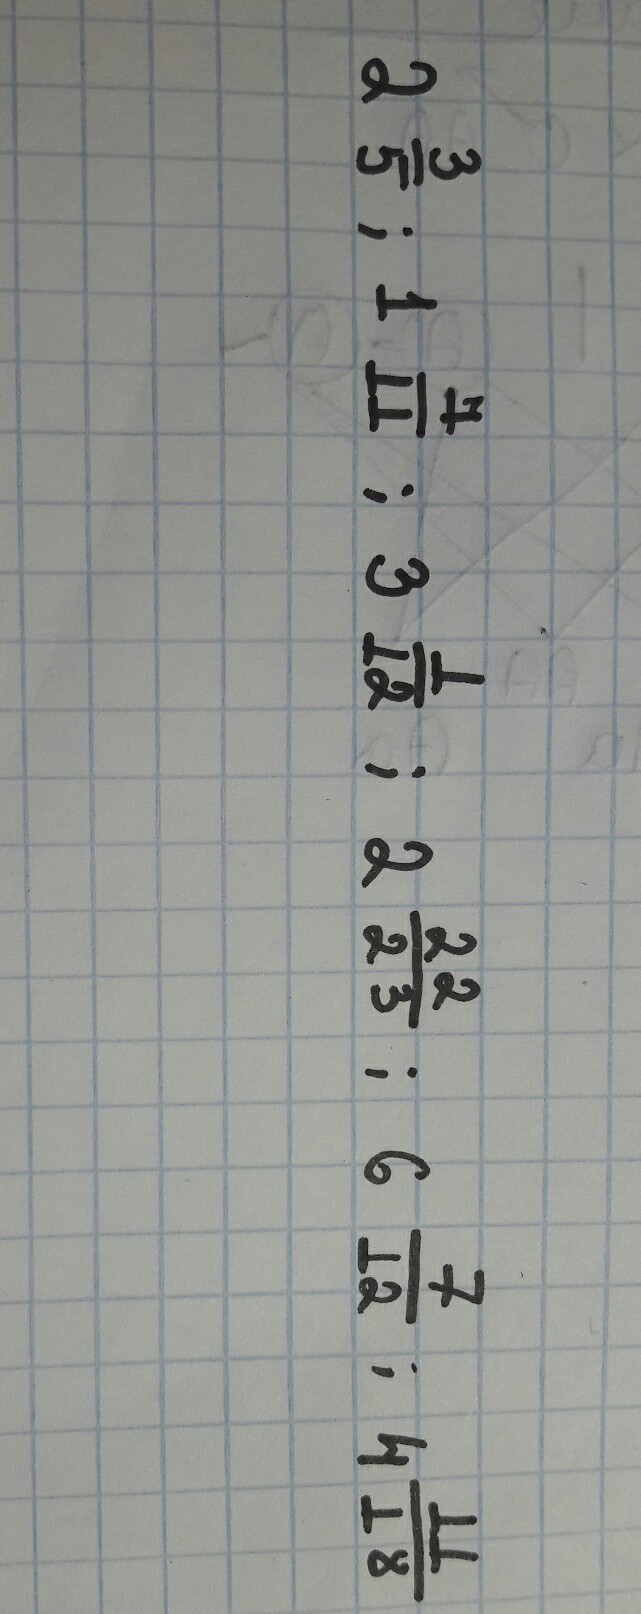 2 3/5 ; 1 7/11 ; 3 1/12 ; 2 22/23 ; 6 7/12 ; 4 11/18